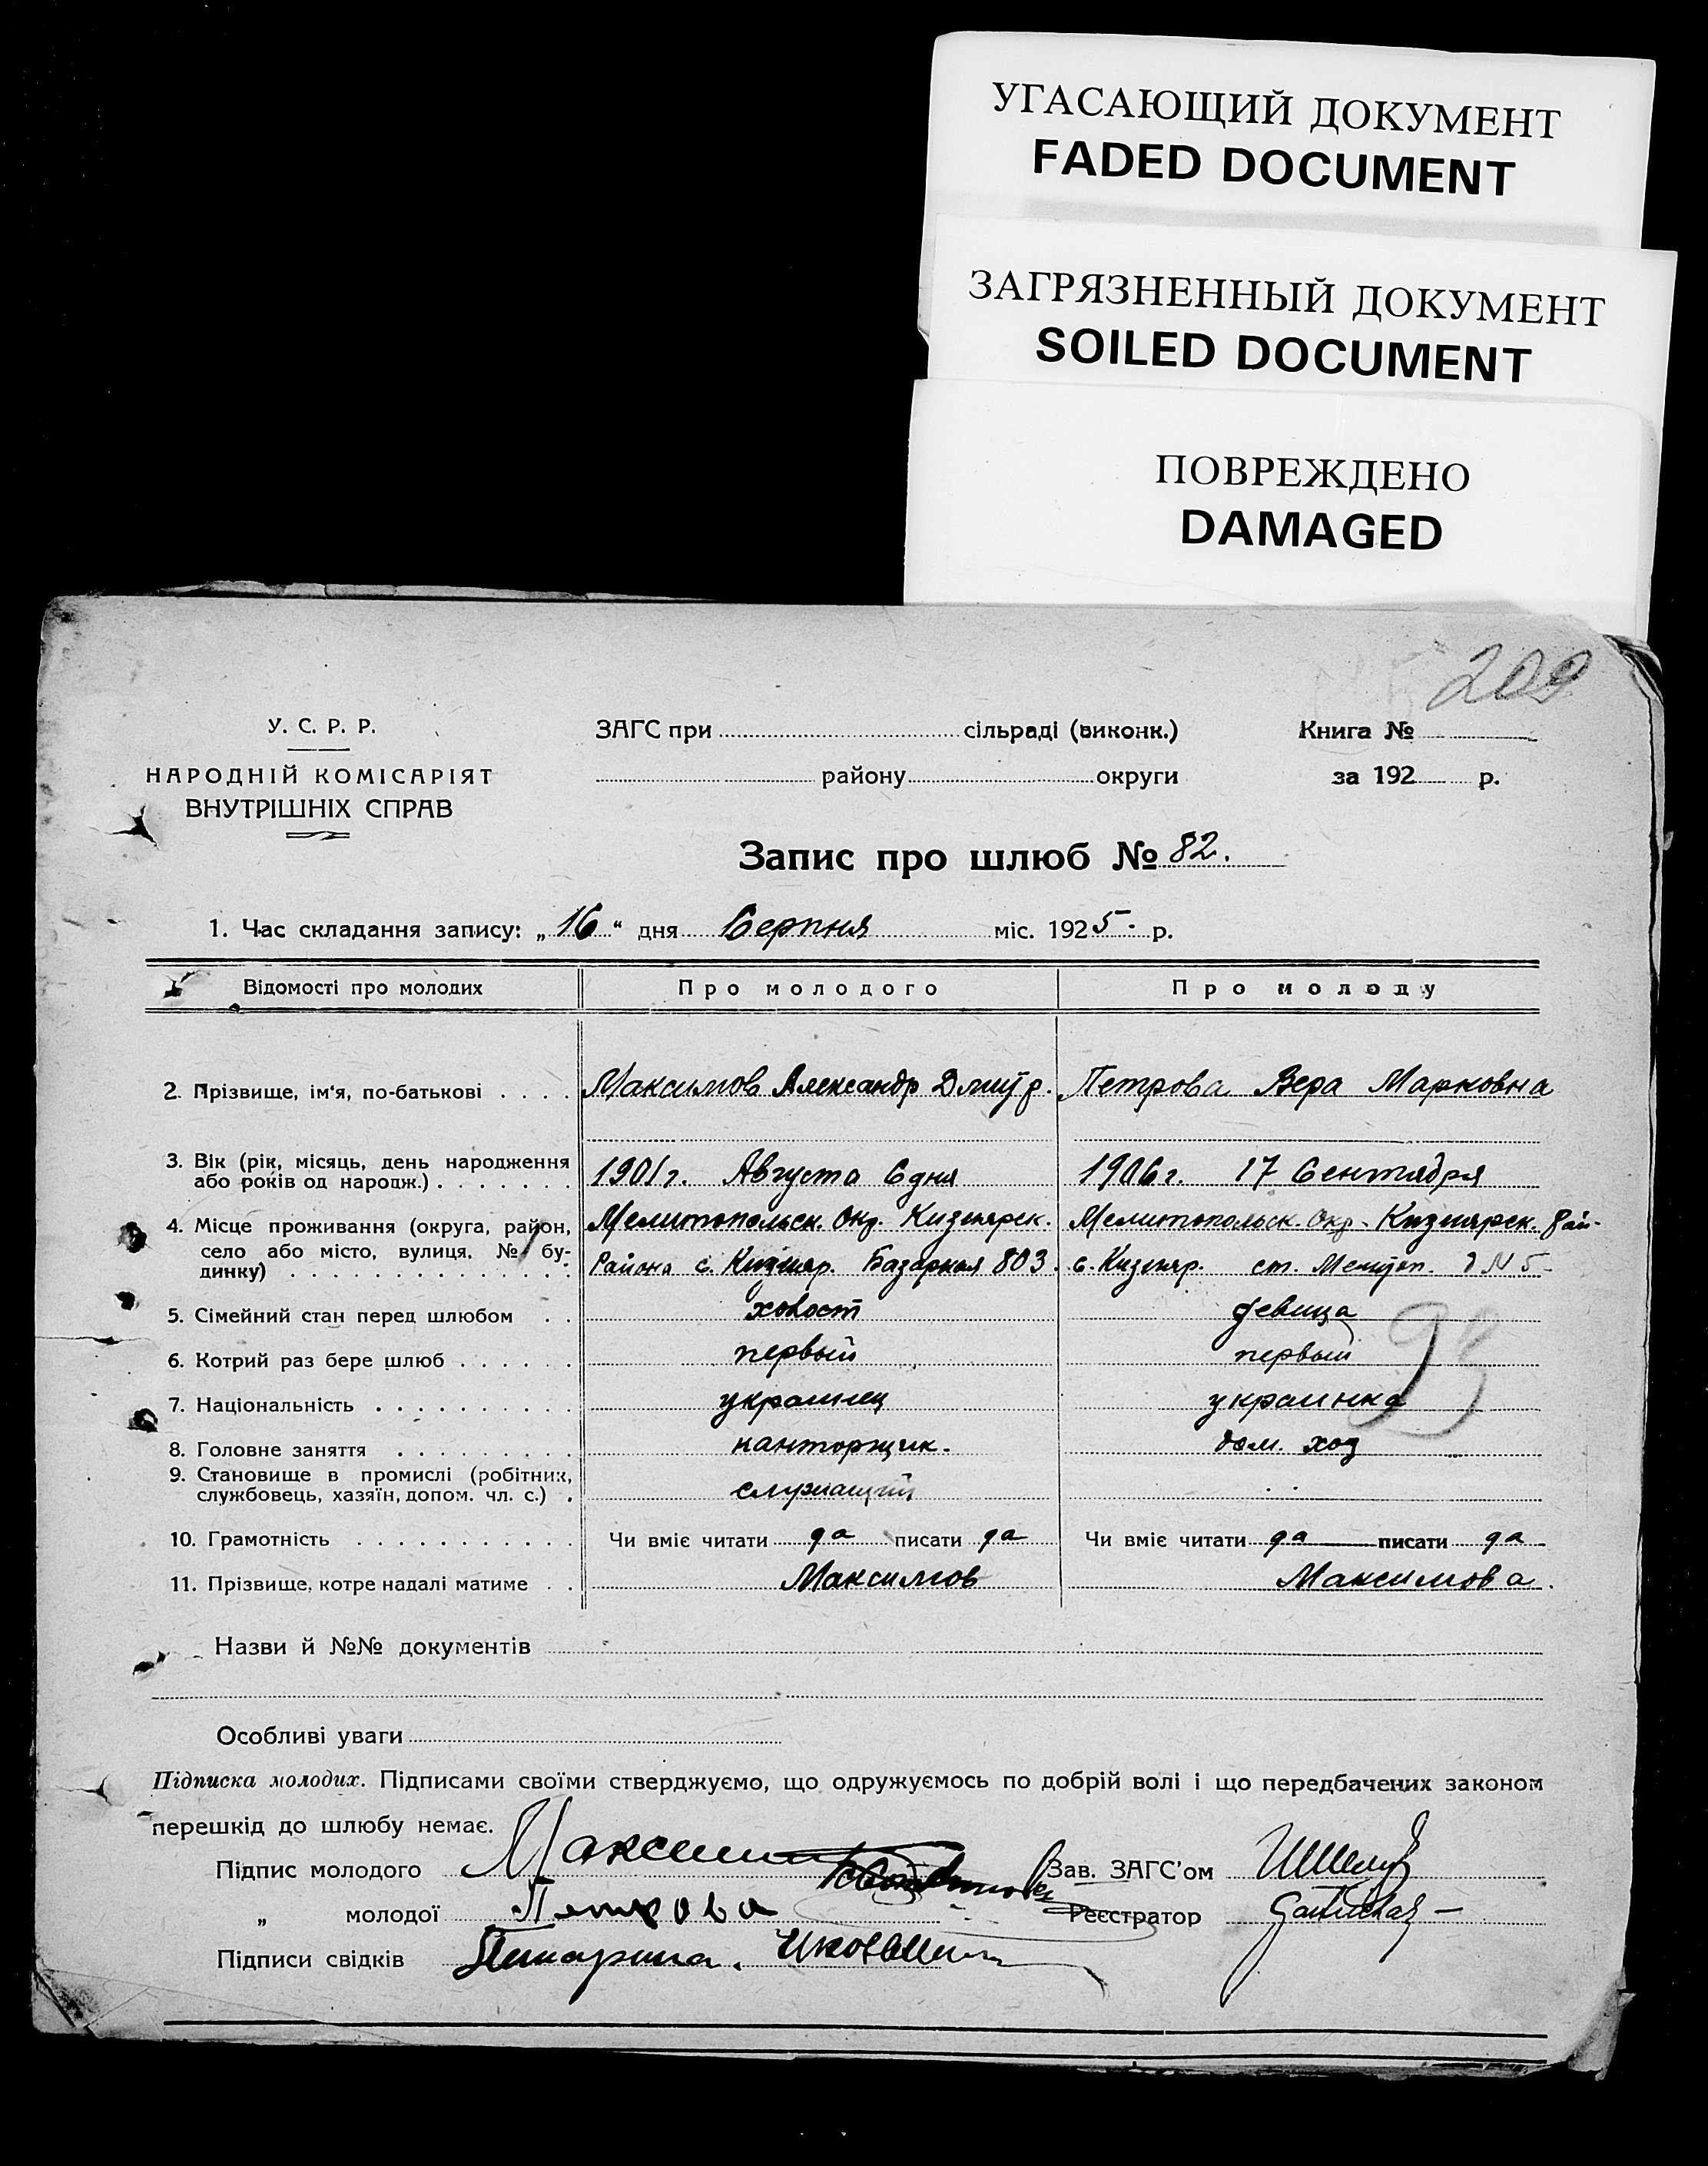 УГАСАЮЩИЙ ДОКУМЕНТ
FADED DOCUMENT
ЗАГРЯЗНЕННЫЙ ДОКУМЕНТ
SOILED DOCUMENT
ПОВРЕЖДЕНО
DAMAGED
202
У. С. Р. Р.
НАРОДНІЙ КОМІСАРІЯТ
ВНУТРІШНІХ СПРАВ
ЗАГС при сільраді (виконк.)
району округи
Книга №
за 192 р.
Запис про шлюб № 82.
1. Час складання запису: „16“ дня Серпня міс. 1925. р.
Відомості про молодих Про молодого Про молоду
2. Прізвище, ім'я, по-батькові Максимов Александр Дмитр. Петрова Вера Марковна
3. Вік (рік, місяць, день народження
або років од народж.) 1901 г. Августа 6 дня 1906 г. 17 Сентября
4. Місце проживання (округа, район, Мелитопольск. Окр. Кизиярск. Мелитопольск. Окр. Кизиярск. Рай-
село або місто, вулиця, № бу-
динку) Района с. Кизияр. Базарная 803. с. Кизияр. ст. Мелитоп. д N 5
5. Сімейний стан перед шлюбом холост девица
6. Котрий раз бере шлюб первый первый
93
7. Національність украинец украинка
8. Головне заняття канторщик. дом. хоз
9. Становище в промислі (робітник,
службовець, хазяїн, допом. чл. с.) служащий
10. Грамотність Чи вміє читати да писати да Чи вміє читати да писати да
11. Прізвище, котре надалі матиме Максимов Максимова.
Назви й №№ документів
Особливі уваги
Підписка молодих. Підписами своїми стверджуємо, що одружуємось по добрій волі і що передбачених законом
перешкід до шлюбу немає.
Підпис молодого Максим Зав. ЗАГС'ом
„ молодої Петрова Реєстратор
Підписи свідків